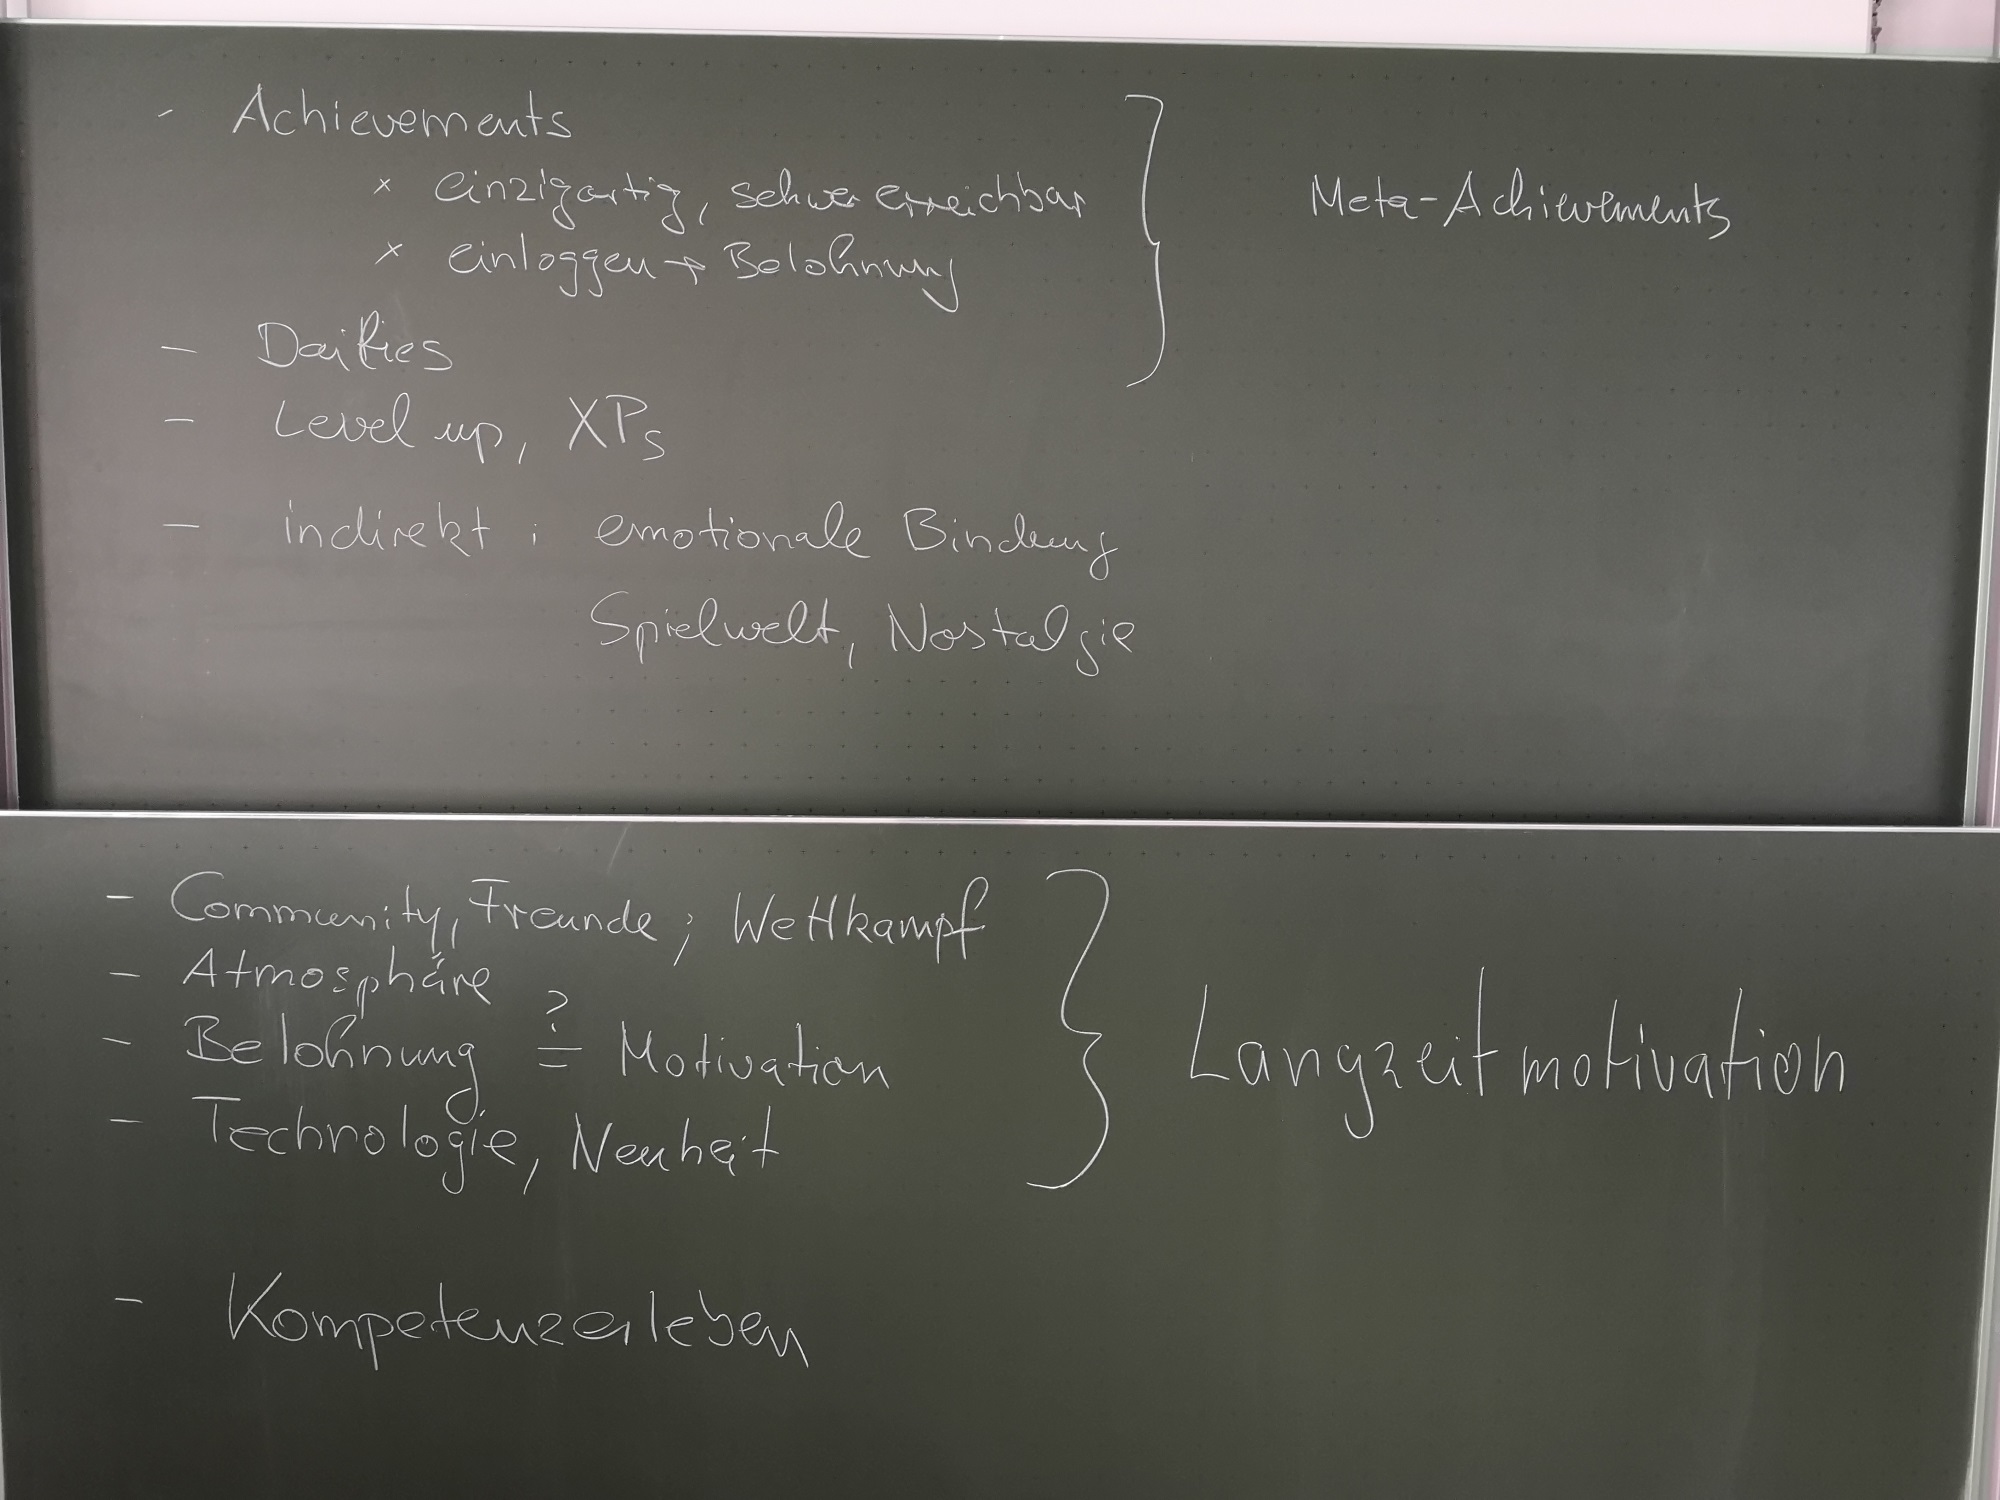 - Achievements
x einzigartig, schwer erreichbar
x einloggen → Belohnung
- Dailies
- Level up, XPs
- indirekt : emotionale Bindung
Spielwelt, Nostalgie
Meta-Achievements
- Community, Freunde ; Wettkampf
- Atmosphäre
- Belohnung ?= Motivation
- Technologie, Neuheit
Langzeitmotivation
- Kompetenzerleben